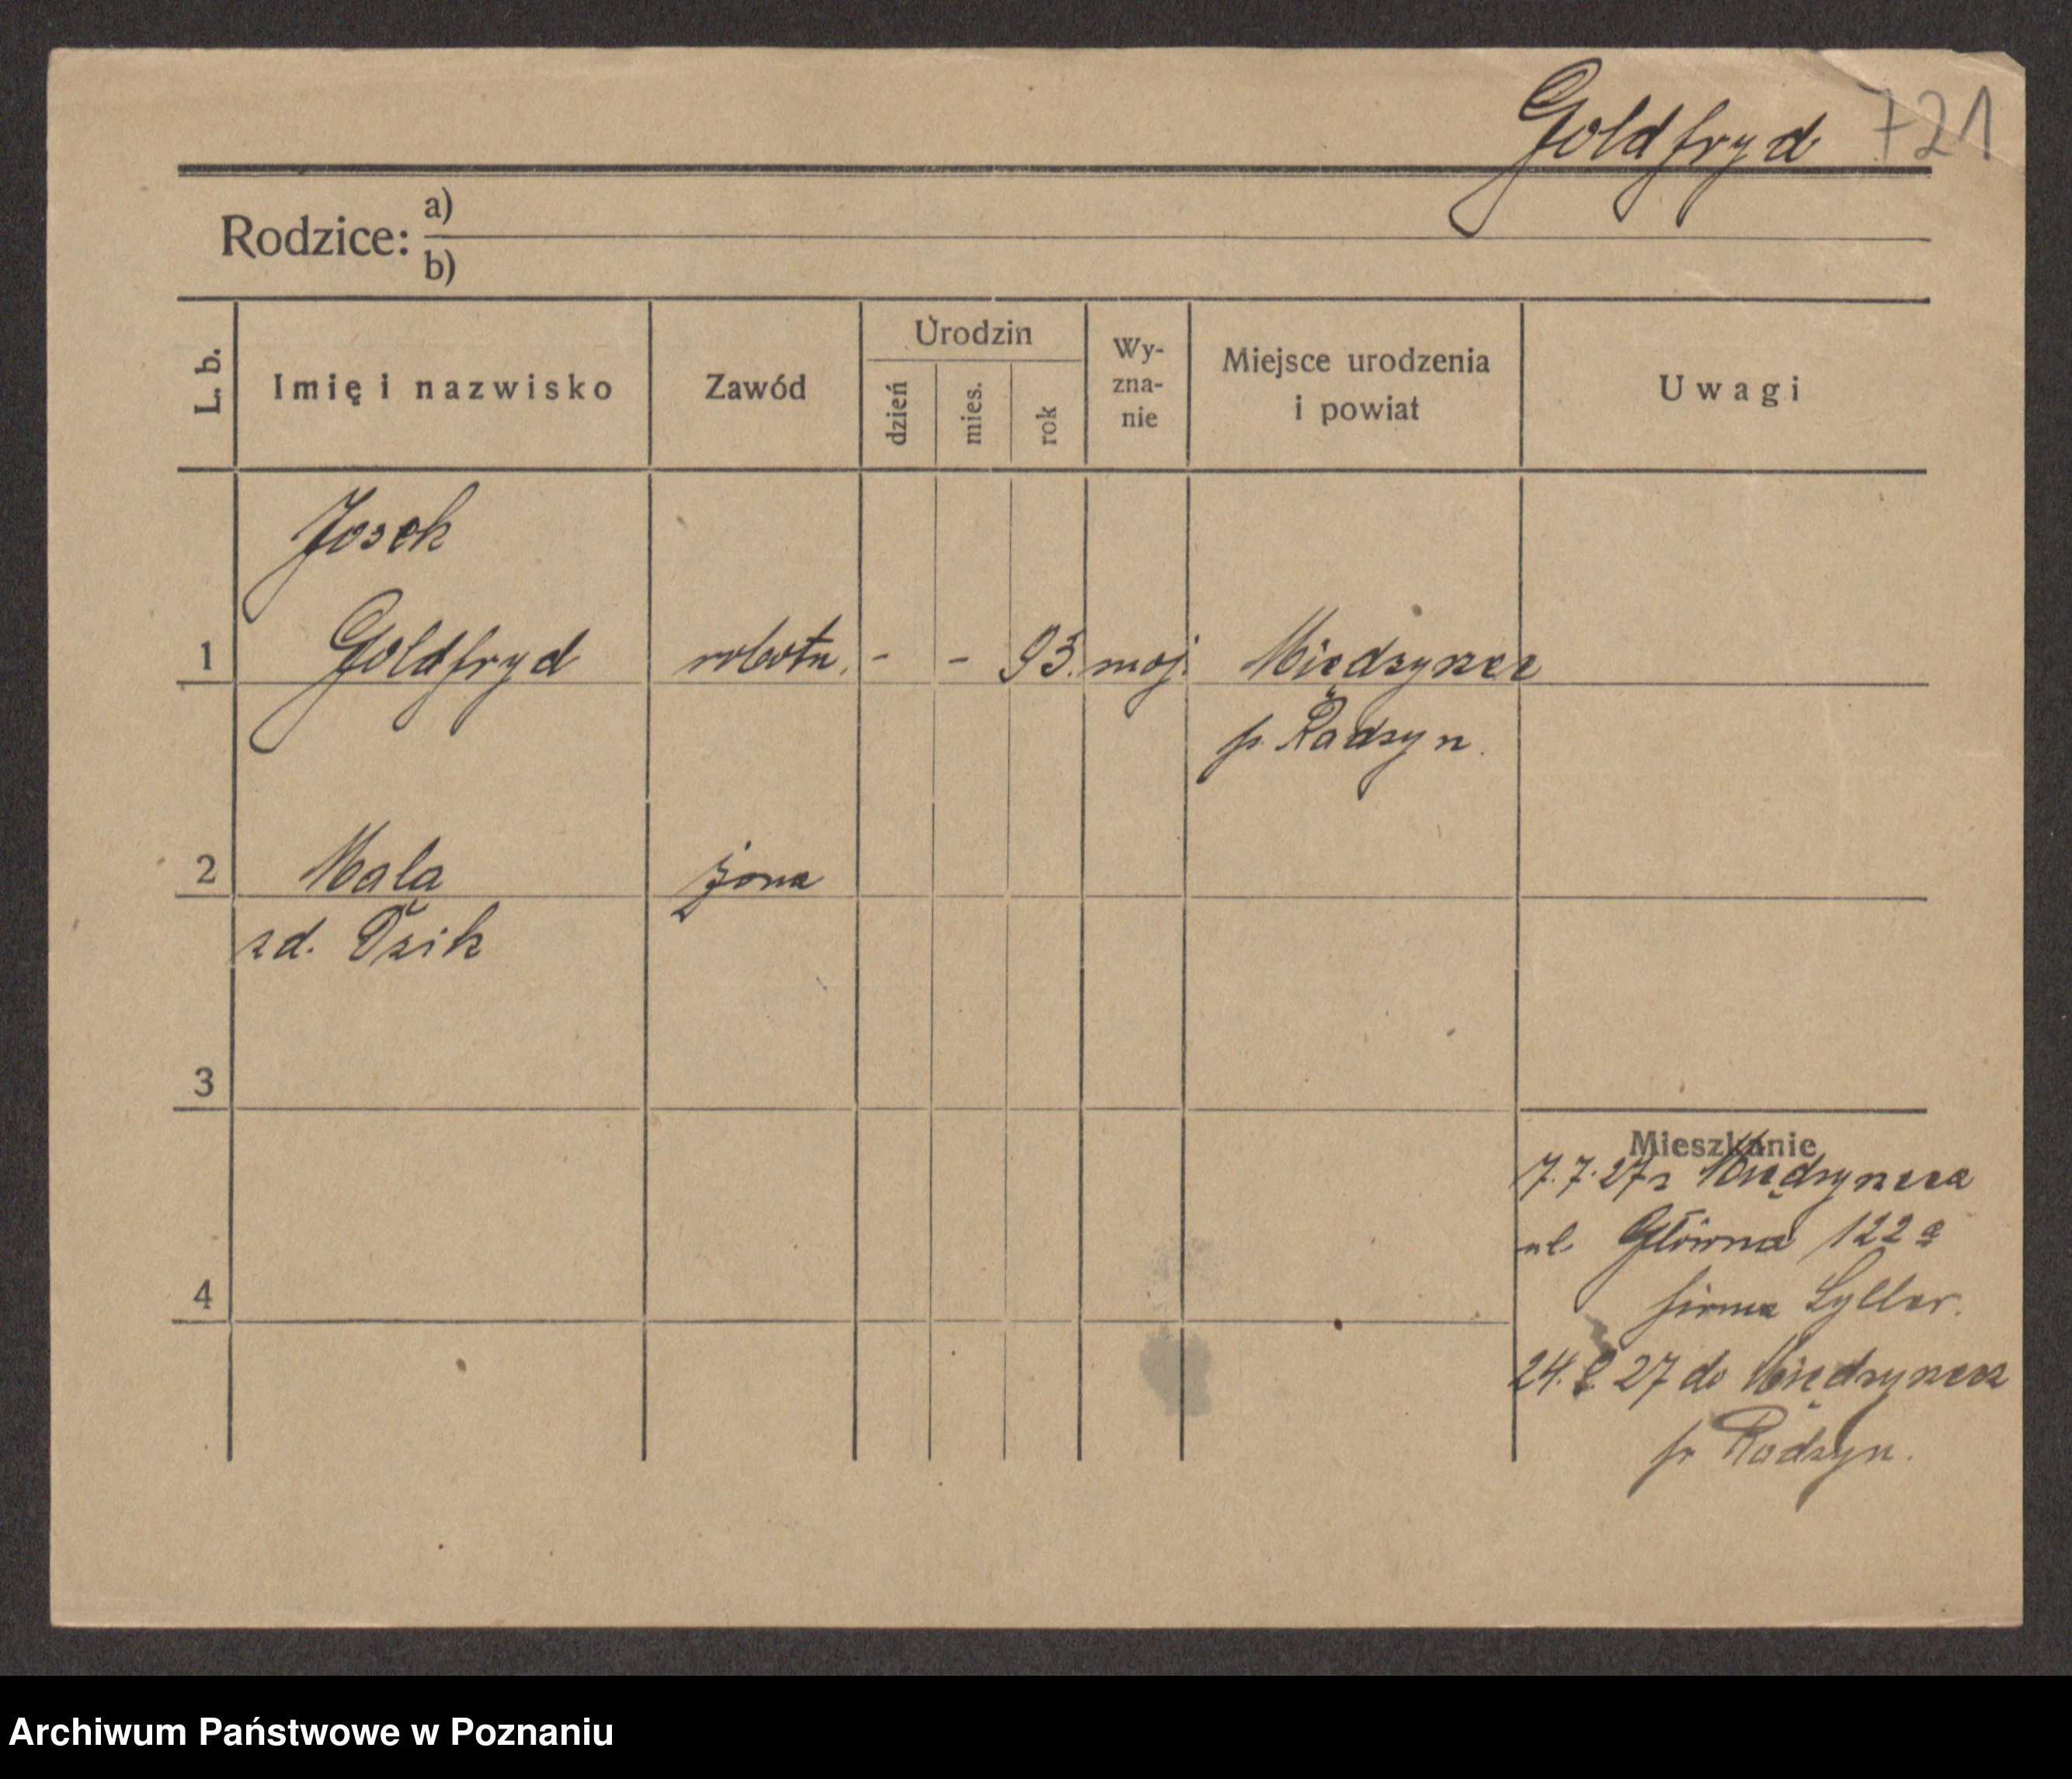 Goldfryd 721
Rodzice: a)
b)
L. b. Imię i nazwisko Zawód Urodzin dzień mies. rok Wy-zna-nie Miejsce urodzenia i powiat Uwagi
Josek
1 Goldfryd robotn. - - 93. moj. Międzyrzec
p. Radzyn.
2 Mala żona
zd. Dzik
3
Mieszkanie
7.7.27 z Międzyrzeca
ul. Główna 122a
4
firma Syller.
24. 27 do Międzyrzecz
p Radzyn.
Archiwum Państwowe w Poznaniu